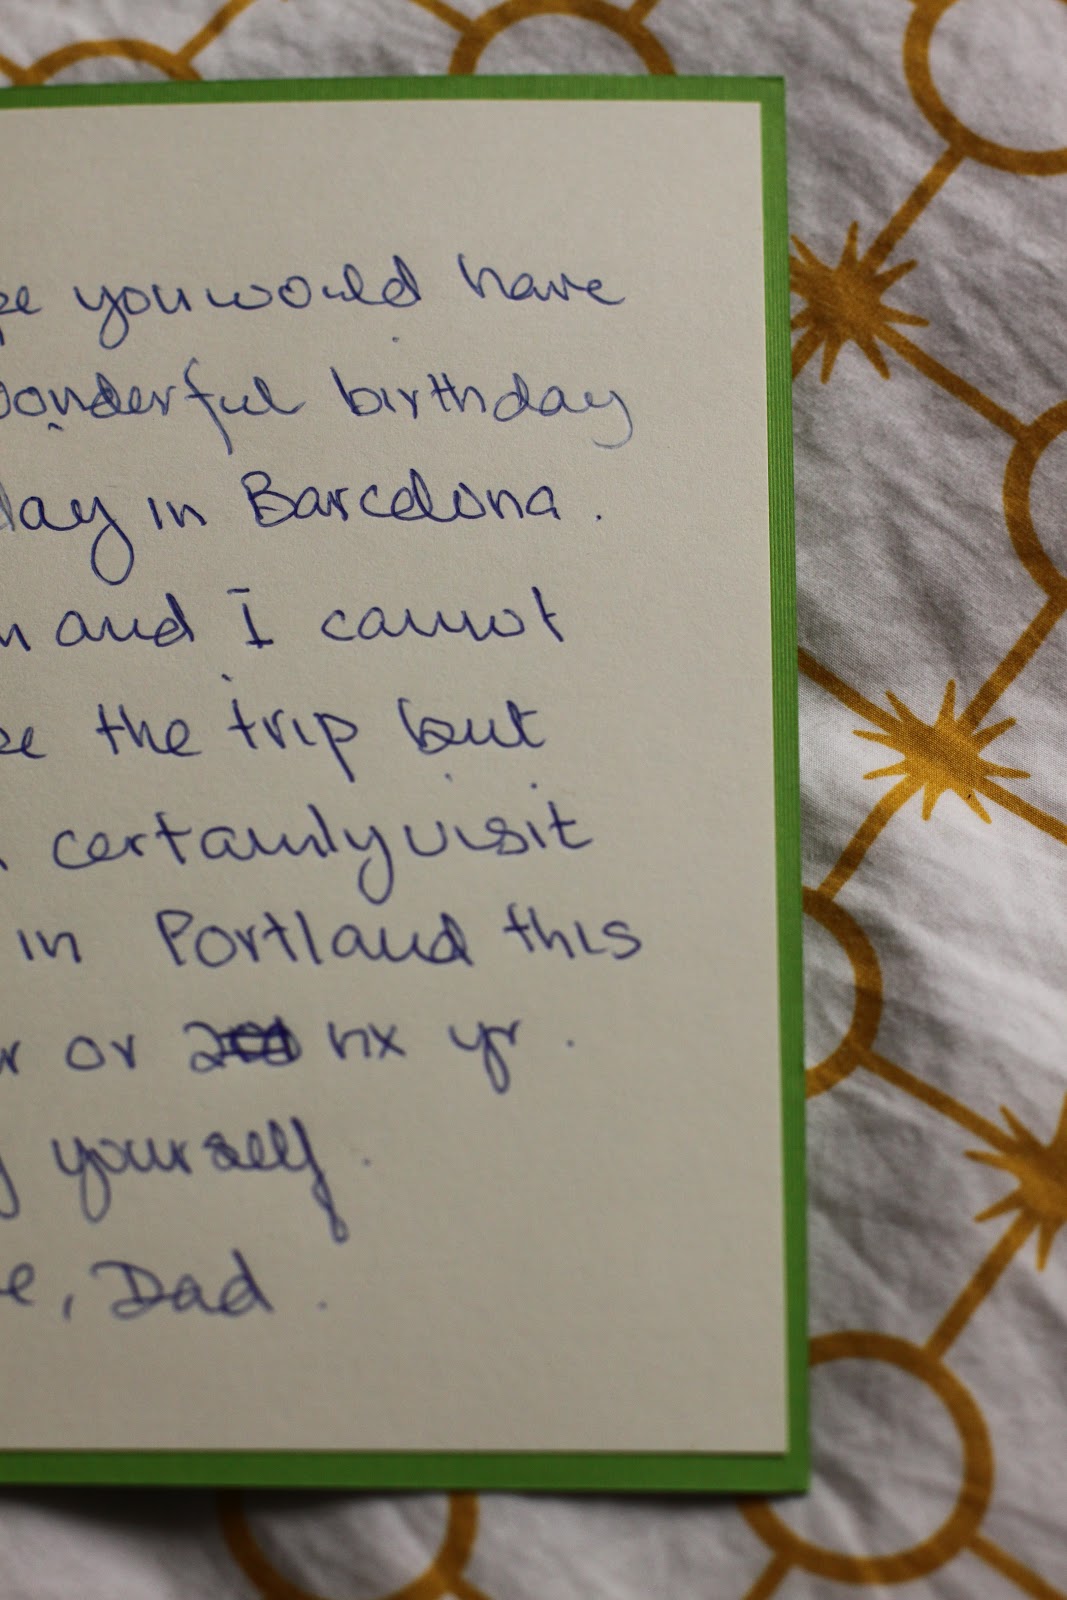 pe you would have
wonderful birthday
day in Barcelona.
n and I cannot
ke the trip but
certainly visit
in Portland this
r or nx yr.
y yourself.
e, Dad.